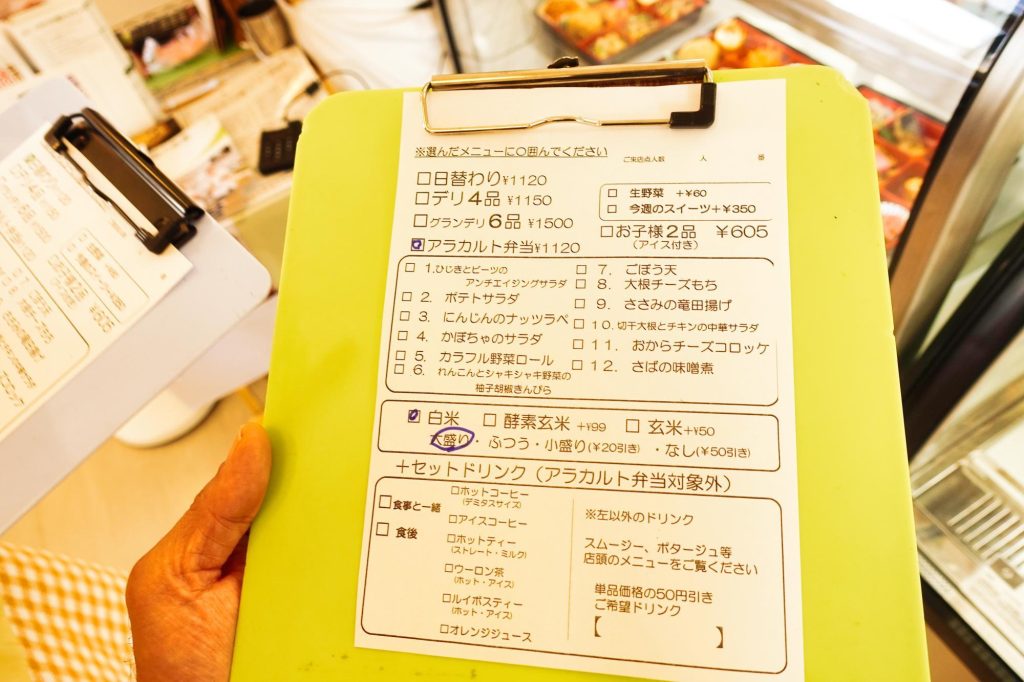 ※選んだメニューに〇囲んでください
ご来店点人数 人 番
□日替わり¥1120
□デリ4品 ¥1150
□グランデリ6品 ¥1500
□アラカルト弁当¥1120
□ 生野菜 +¥60
□ 今週のスイーツ+¥350
□お子様2品 ¥605
(アイス付き)
□ 1.ひじきとビーツの
アンチエイジングサラダ
□ 2. ポテトサラダ
□ 3. にんじんのナッツラペ
□ 4. かぼちゃのサラダ
□ 5. カラフル野菜ロール
□ 6. れんこんとシャキシャキ野菜の
柚子胡椒きんぴら
□ 7. ごぼう天
□ 8. 大根チーズもち
□ 9. ささみの竜田揚げ
□ 10. 切干大根とチキンの中華サラダ
□ 11. おからチーズコロッケ
□ 12. さばの味噌煮
□ 白米 □ 酵素玄米 +¥99 □ 玄米+¥50
大盛り・ふつう・小盛り(¥20引き)・なし(¥50引き)
+セットドリンク(アラカルト弁当対象外)
□食事と一緒
□ 食後
□ホットコーヒー
(デミタスサイズ)
□アイスコーヒー
□ホットティー
(ストレート・ミルク)
□ウーロン茶
(ホット・アイス)
□ルイボスティー
(ホット・アイス)
□オレンジジュース
※左以外のドリンク
スムージー、ポタージュ等
店頭のメニューをご覧ください
単品価格の50円引き
ご希望ドリンク
【 】